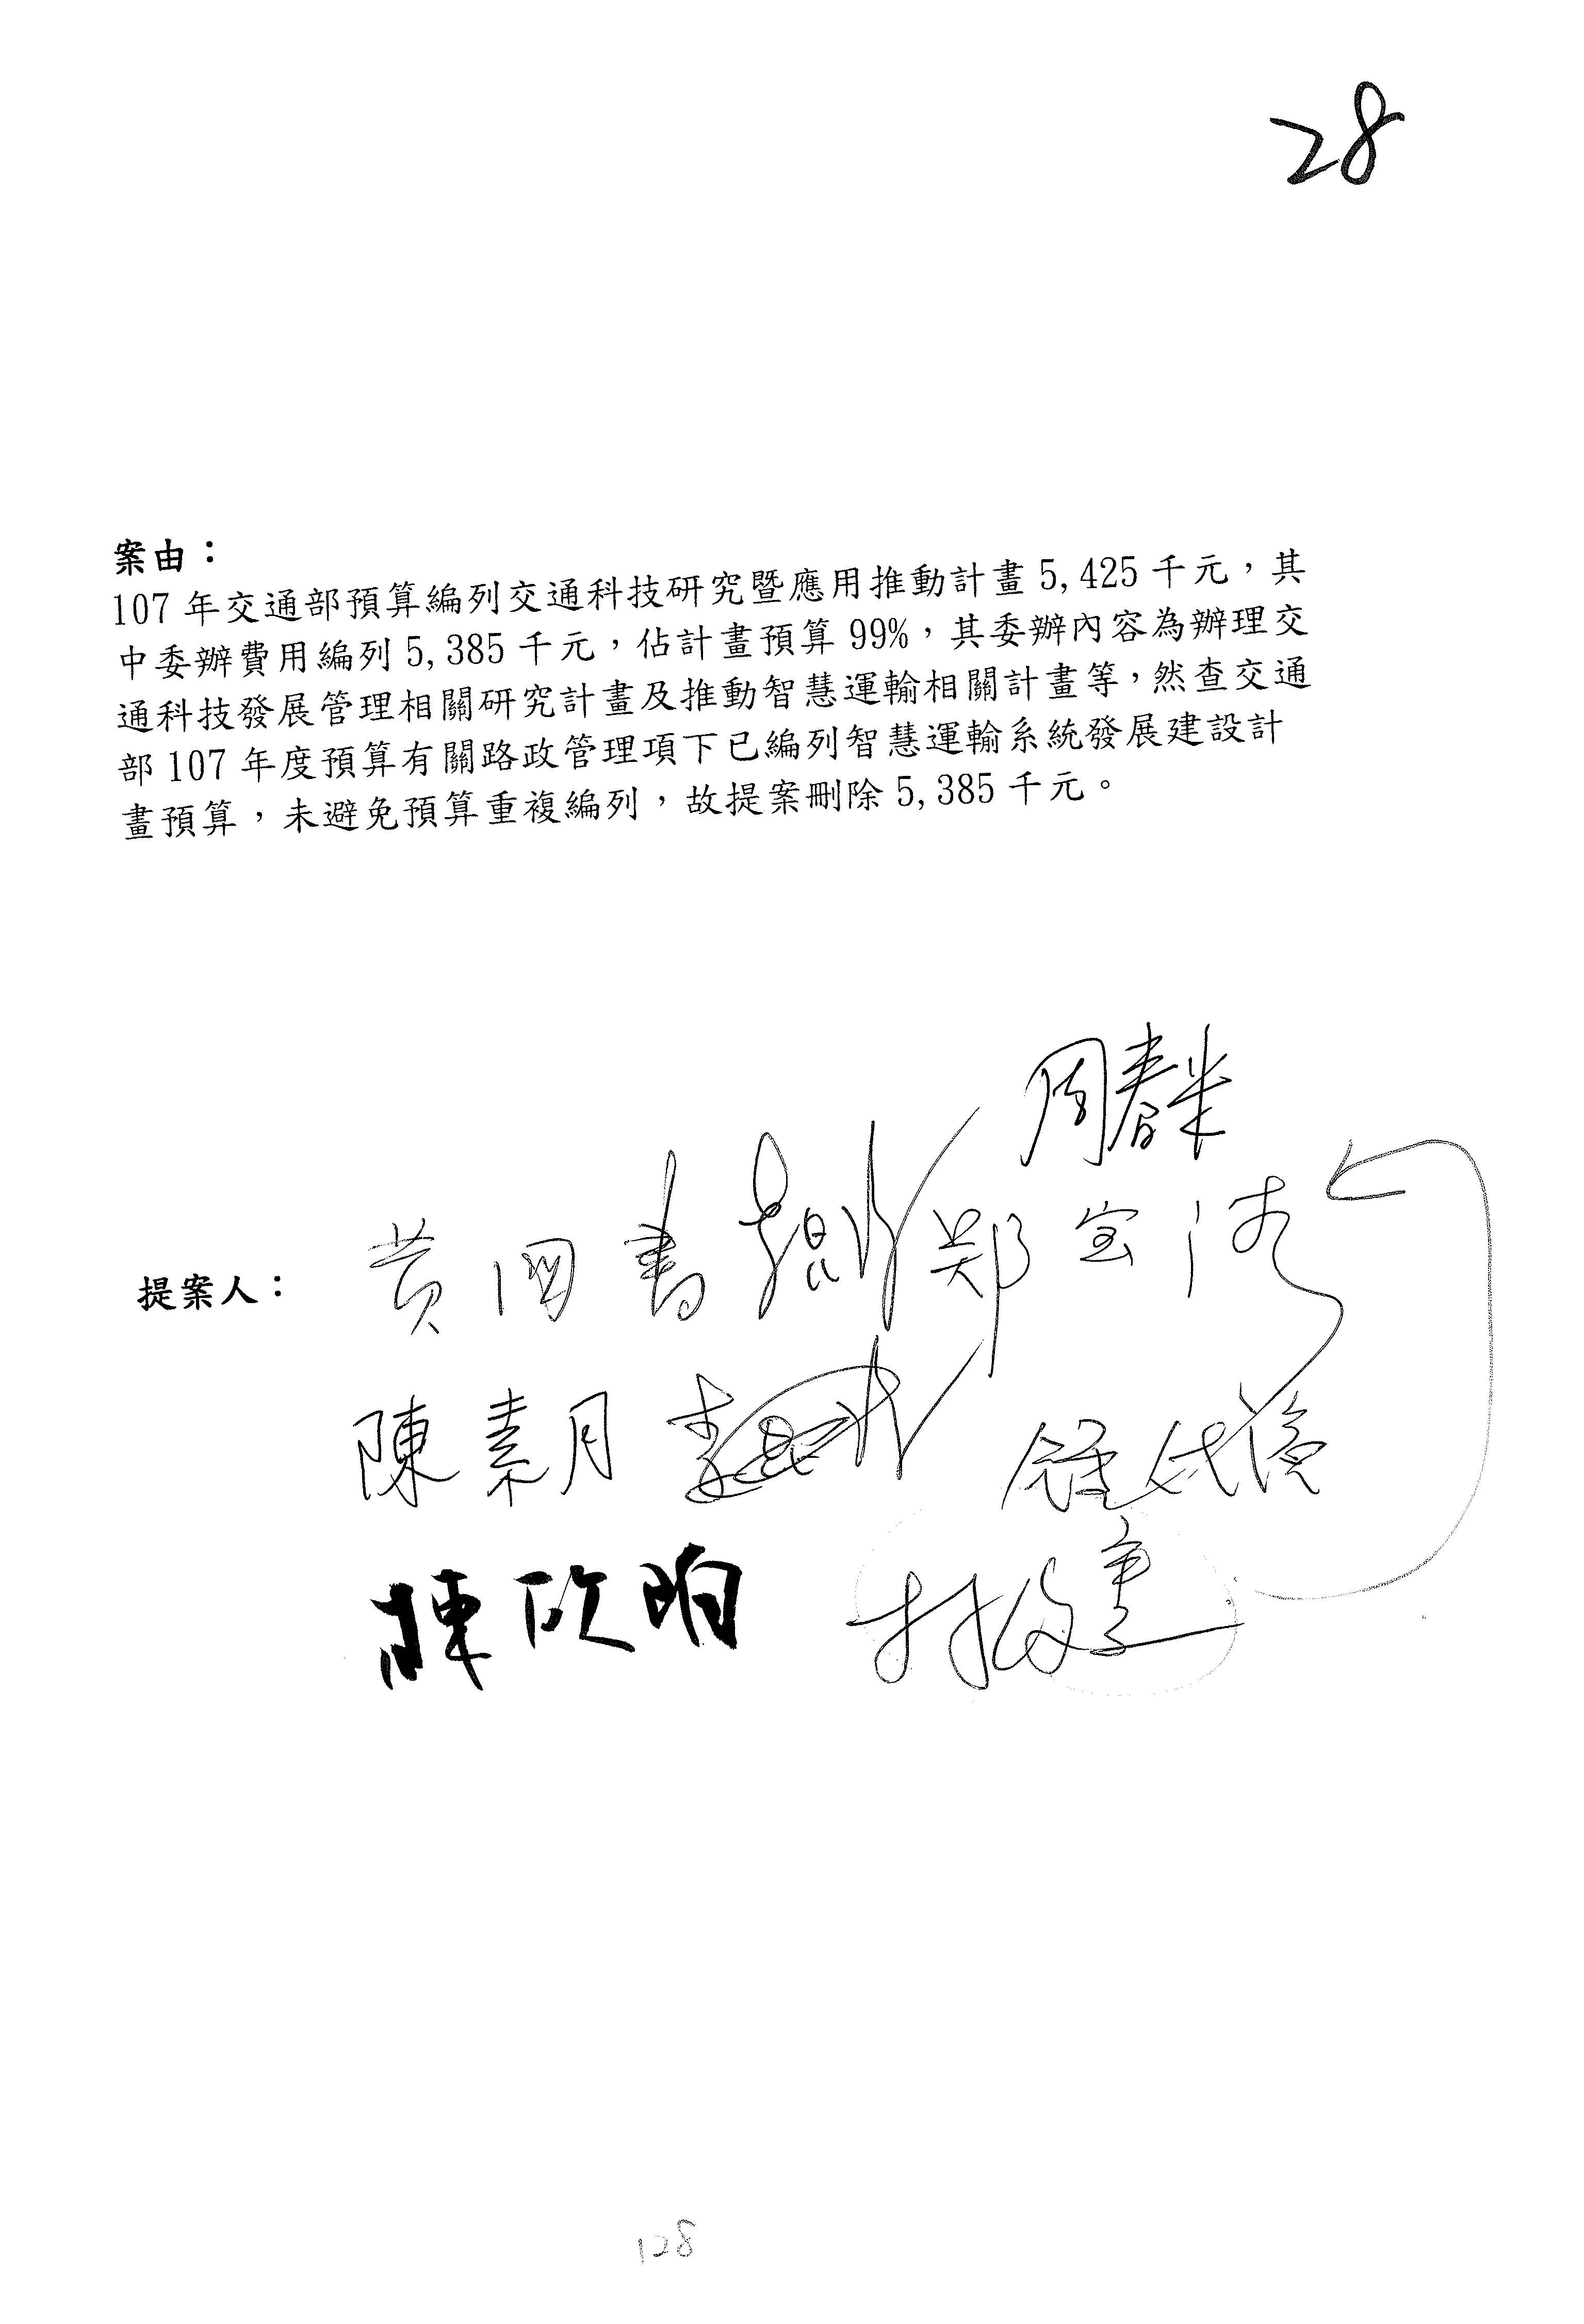 28
案由：
107 年交通部預算編列交通科技研究暨應用推動計畫 5,425 千元，其
中委辦費用編列 5,385 千元，佔計畫預算 99%，其委辦內容為辦理交
通科技發展管理相關研究計畫及推動智慧運輸相關計畫等，然查交通
部 107 年度預算有關路政管理項下已編列智慧運輸系統發展建設計
畫預算，未避免預算重複編列，故提案刪除 5,385 千元。
周春米
提案人：
黃國書
鄭宝清
陳素月
陳欣
林俊憲
128